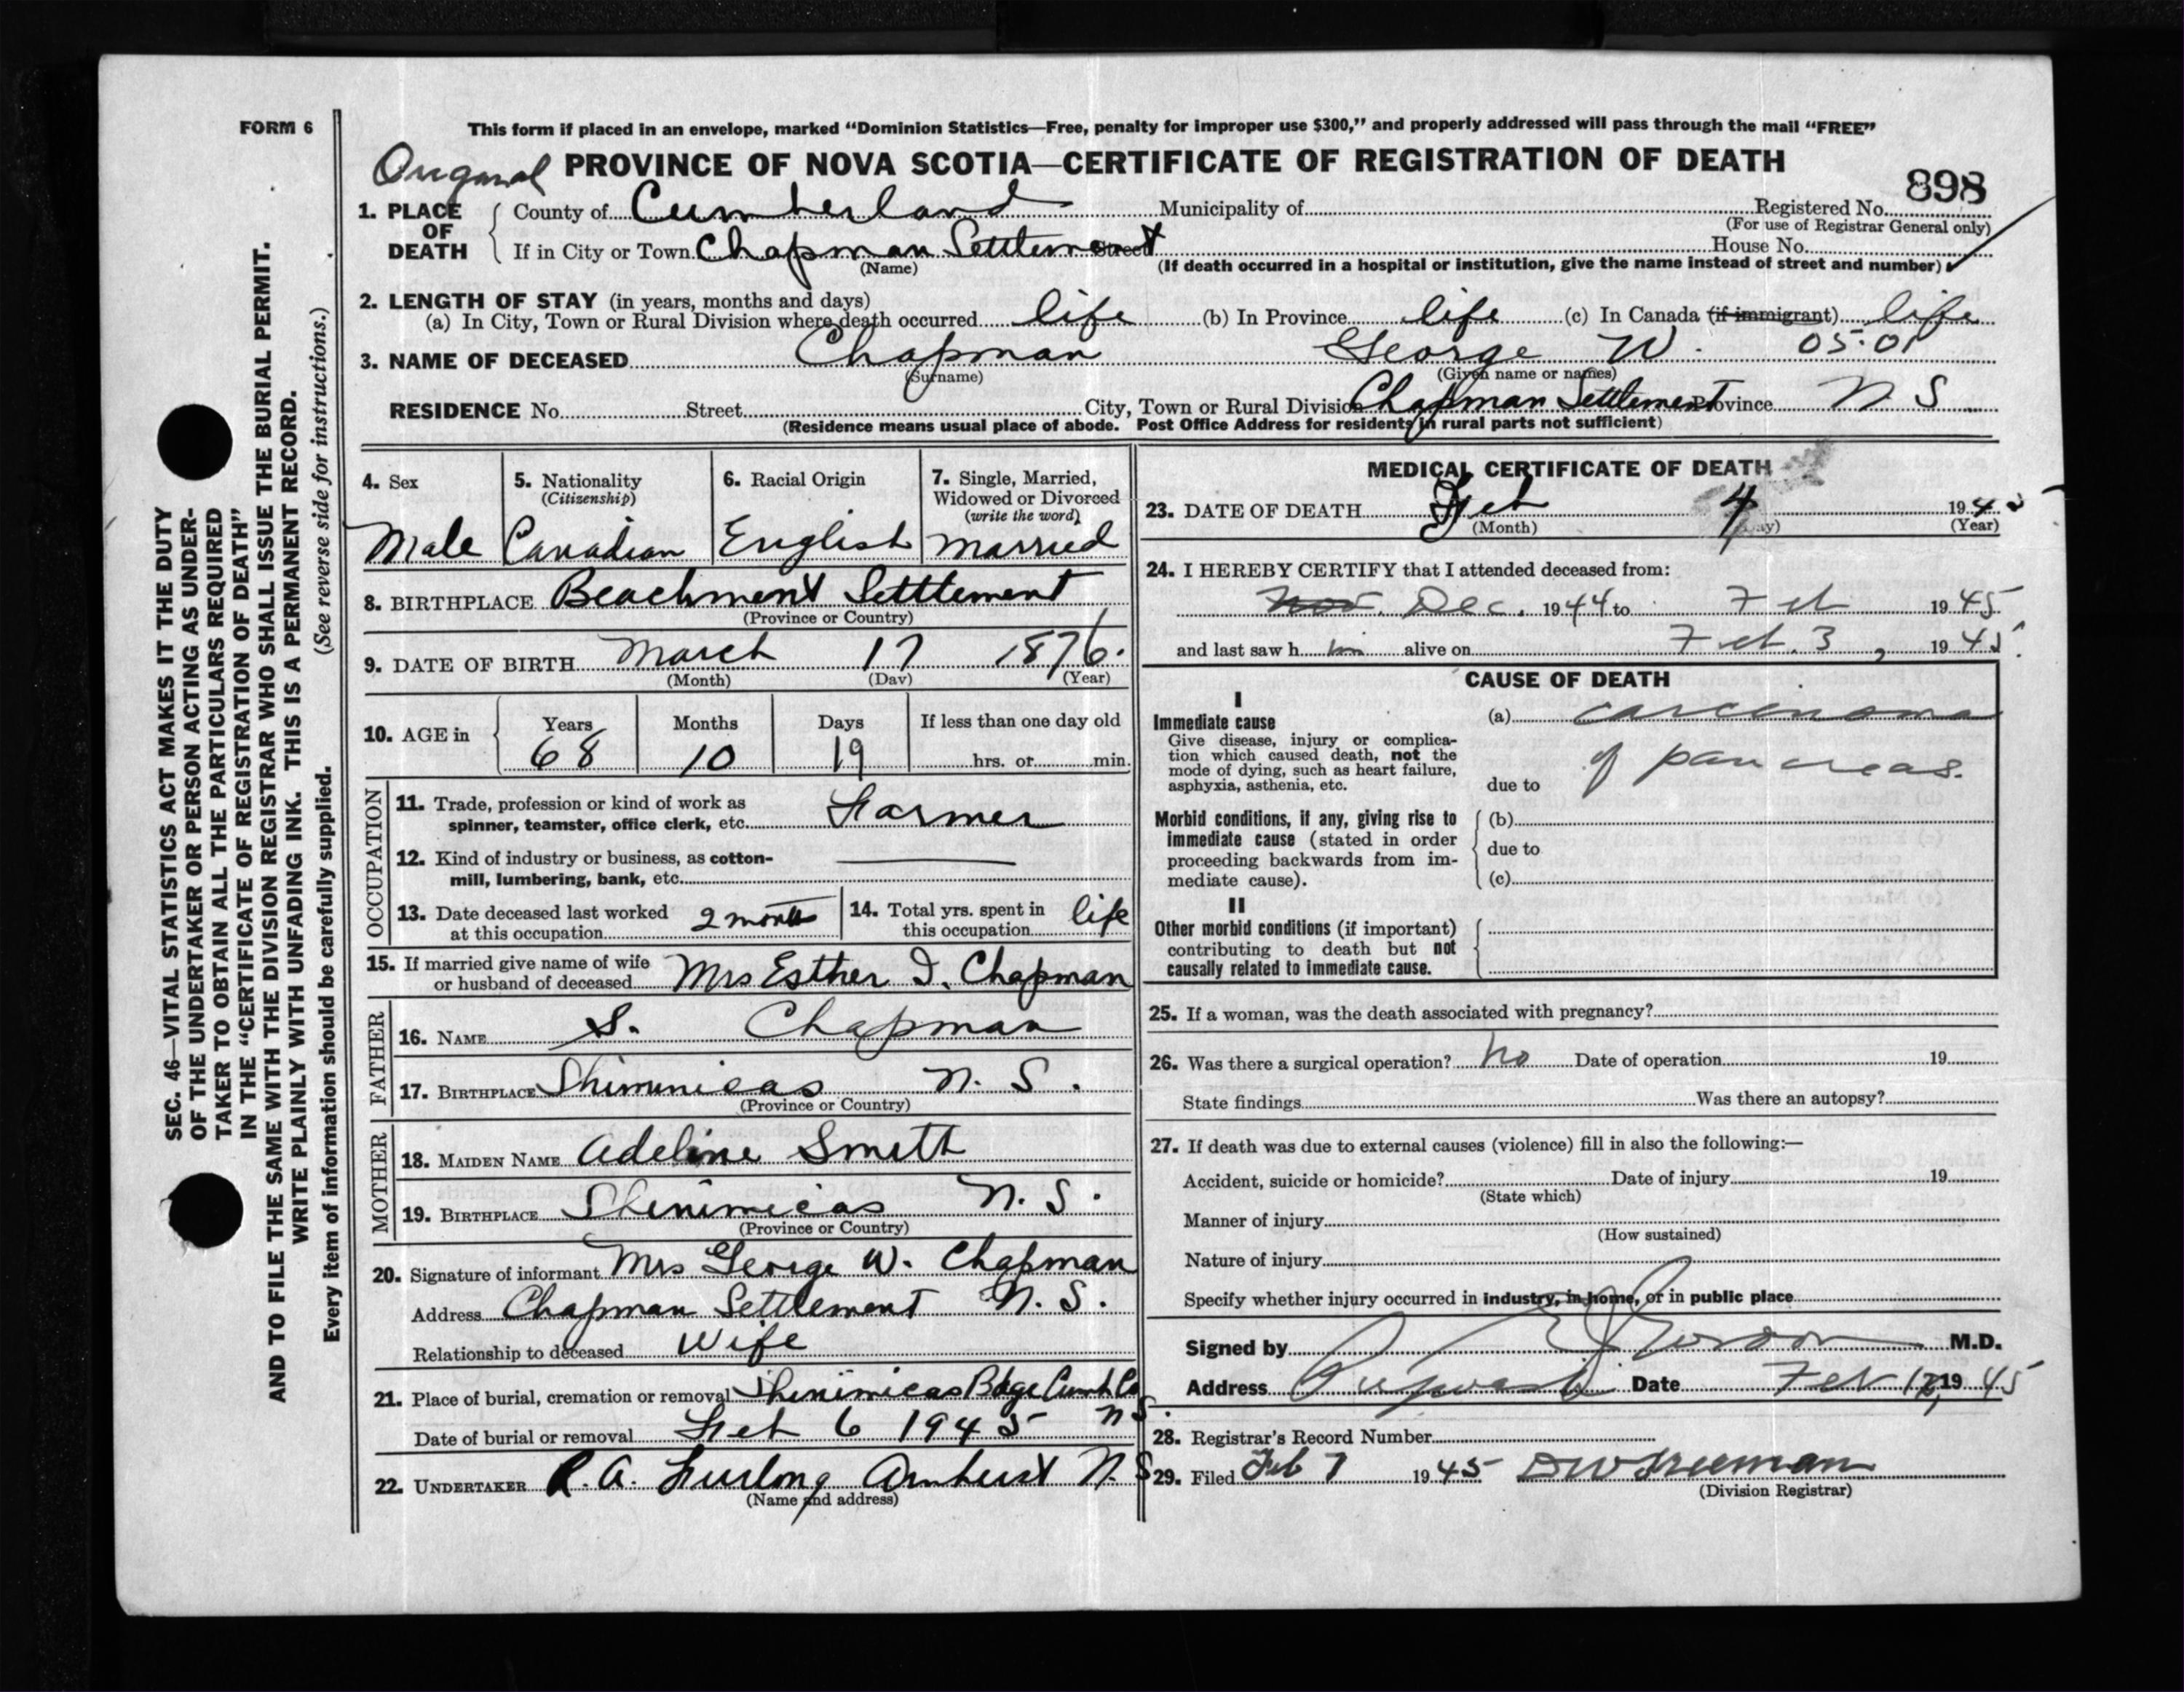 FORM 6
This form if placed in an envelope, marked “Dominion Statistics—Free, penalty for improper use $300,” and properly addressed will pass through the mail “FREE”
Original PROVINCE OF NOVA SCOTIA—CERTIFICATE OF REGISTRATION OF DEATH
898
1. PLACE OF DEATH
County of Cumberland Municipality of Registered No.
(For use of Registrar General only)
If in City or Town Chapman Settlement Street House No.
(Name) (If death occurred in a hospital or institution, give the name instead of street and number)
2. LENGTH OF STAY (in years, months and days)
(a) In City, Town or Rural Division where death occurred life (b) In Province life (c) In Canada (if immigrant) life
3. NAME OF DECEASED Chapman George W. 05-01
(Surname) (Given name or names)
RESIDENCE No. Street City, Town or Rural Division Chapman Settlement Province N S
(Residence means usual place of abode. Post Office Address for residents in rural parts not sufficient)
4. Sex
Male
5. Nationality
(Citizenship)
Canadian
6. Racial Origin
English
7. Single, Married,
Widowed or Divorced
(write the word)
Married
8. BIRTHPLACE Beachmont Setttement
(Province or Country)
9. DATE OF BIRTH March 17 1876.
(Month) (Day) (Year)
10. AGE in Years Months Days If less than one day old
68 10 19 hrs. or min.
OCCUPATION
11. Trade, profession or kind of work as
spinner, teamster, office clerk, etc. Farmer
12. Kind of industry or business, as cotton-
mill, lumbering, bank, etc.
13. Date deceased last worked
at this occupation 2 months
14. Total yrs. spent in
this occupation life
15. If married give name of wife
or husband of deceased Mrs Esther I. Chapman
FATHER
16. NAME S. Chapman
17. BIRTHPLACE Shinimicas N. S.
(Province or Country)
MOTHER
18. MAIDEN NAME Adeline Smith
19. BIRTHPLACE Shinimicas N. S.
(Province or Country)
20. Signature of informant Mrs George W. Chapman
Address Chapman Settlement N. S.
Relationship to deceased Wife
21. Place of burial, cremation or removal Shinimicas Bdge Cumb Co
N S.
Date of burial or removal Feb 6 1945
22. UNDERTAKER R. A. Furlong Amherst N. S
(Name and address)
MEDICAL CERTIFICATE OF DEATH
23. DATE OF DEATH Feb 4 1945
(Month) (Day) (Year)
24. I HEREBY CERTIFY that I attended deceased from:
Nov. Dec. 1944 to Feb 1945
and last saw h im alive on Feb. 3, 1945.
CAUSE OF DEATH
I
Immediate cause
Give disease, injury or complica-
tion which caused death, not the
mode of dying, such as heart failure,
asphyxia, asthenia, etc.
(a) carcenoma
of pancreas.
due to
Morbid conditions, if any, giving rise to
immediate cause (stated in order
proceeding backwards from im-
mediate cause).
(b)
due to
(c)
II
Other morbid conditions (if important)
contributing to death but not
causally related to immediate cause.
25. If a woman, was the death associated with pregnancy?
26. Was there a surgical operation? no Date of operation 19
State findings Was there an autopsy?
27. If death was due to external causes (violence) fill in also the following:—
Accident, suicide or homicide? Date of injury 19
(State which)
Manner of injury
(How sustained)
Nature of injury
Specify whether injury occurred in industry, in home, or in public place
Signed by M.D.
Address Pugwash Date Feb 1945
28. Registrar's Record Number
29. Filed Feb 7 1945 D W Freeman
(Division Registrar)
SEC. 46—VITAL STATISTICS ACT MAKES IT THE DUTY
OF THE UNDERTAKER OR PERSON ACTING AS UNDER-
TAKER TO OBTAIN ALL THE PARTICULARS REQUIRED
IN THE “CERTIFICATE OF REGISTRATION OF DEATH”
AND TO FILE THE SAME WITH THE DIVISION REGISTRAR WHO SHALL ISSUE THE BURIAL PERMIT.
WRITE PLAINLY WITH UNFADING INK. THIS IS A PERMANENT RECORD.
Every item of information should be carefully supplied. (See reverse side for instructions.)